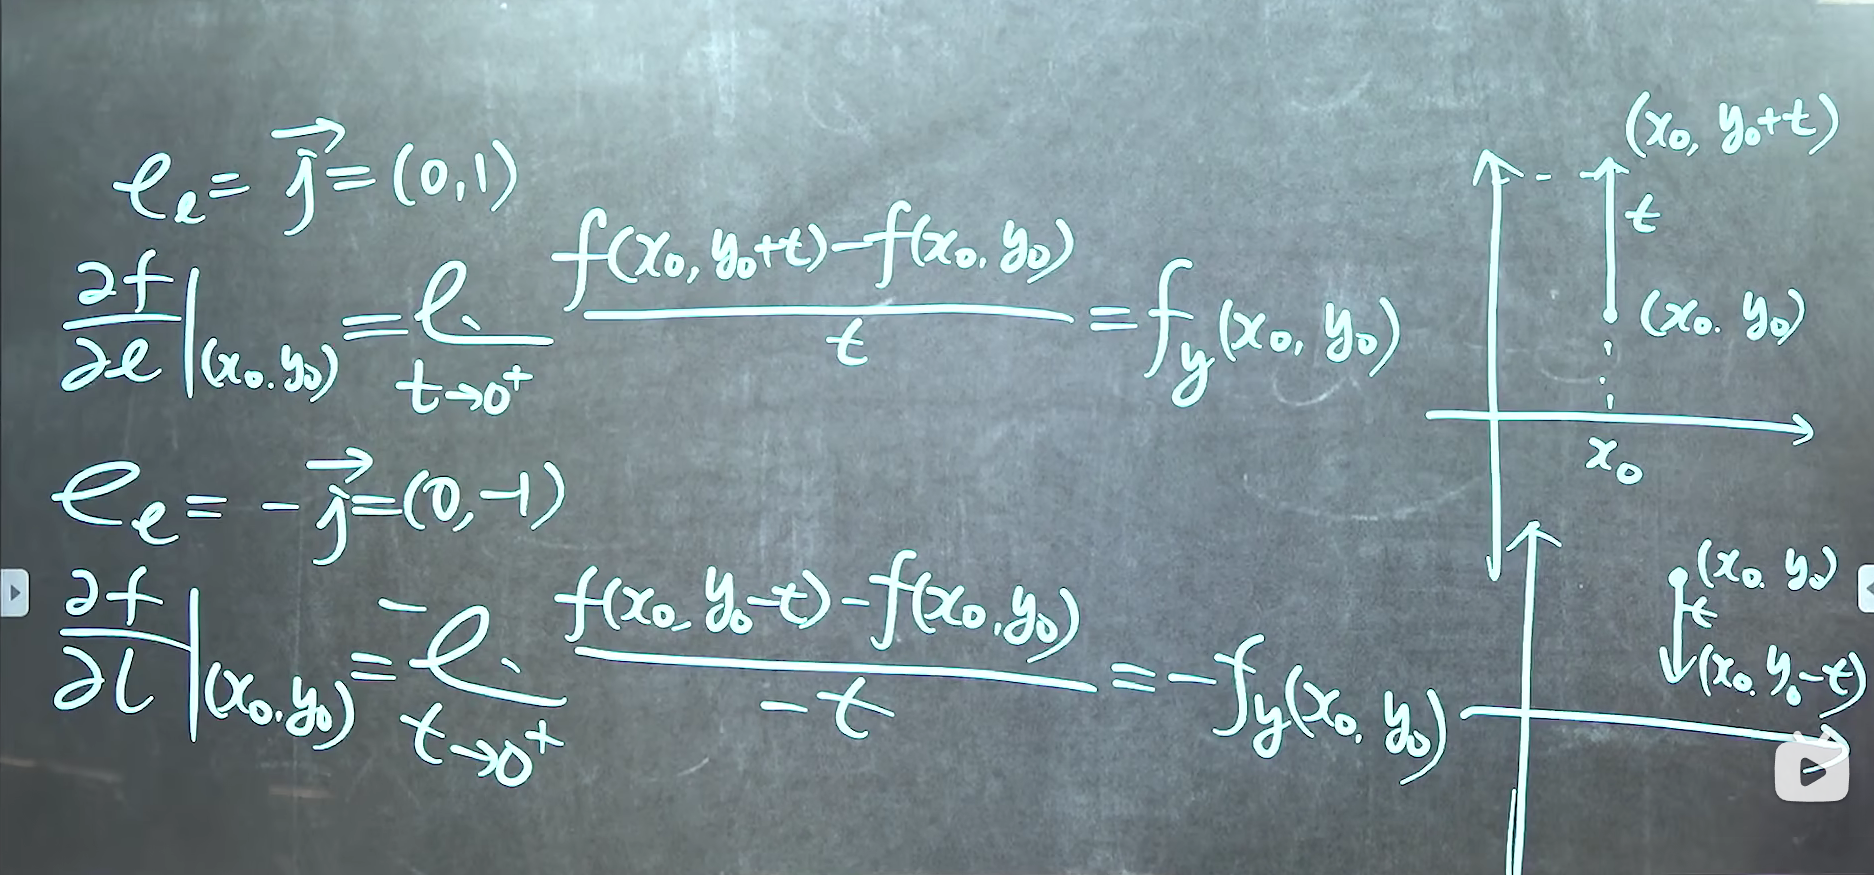 eₑ = j⃗ = (0,1)
∂f/∂l |(x₀.y₀) = l. t→0⁺ f(x₀, y₀+t) − f(x₀, y₀) / t = f_y(x₀, y₀)
eₑ = −j⃗ = (0,−1)
∂f/∂l |(x₀.y₀) = −l. t→0⁺ f(x₀, y₀−t) − f(x₀,y₀) / −t = −f_y(x₀, y₀)
(x₀, y₀+t)
t
(x₀. y₀)
x₀
(x₀. y₀)
t
(x₀. y₀−t)